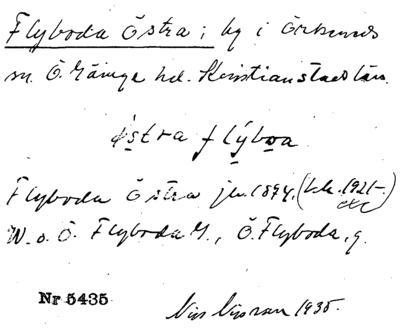 Flyboda Östra; by i Örkeneds
sn. Ö. Göinge hd. Kristianstads län.
östra flýboa
Flyboda Östra jb. 1894, (
W. o. Ö. Flyboda, Ö. Flyboda, g.
Nr 5435
1935.